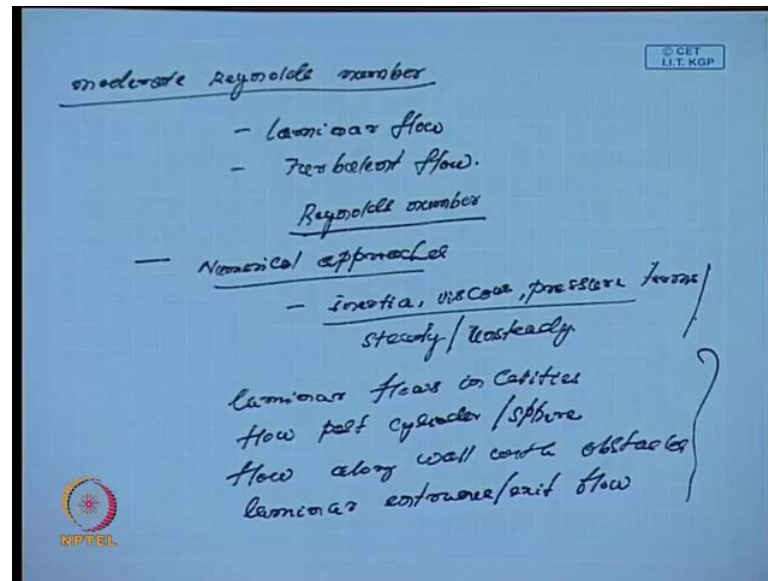 © CET
I.I.T. KGP
moderate Reynolds number
- laminar flow
- Turbulent flow.
Reynolds number
- Numerical approaches
- inertia, viscous, pressure terms
steady / unsteady
laminar flows in cavities
flow past cylinder / sphere
flow along wall with obstacles
laminar entrance/exit flow
NPTEL